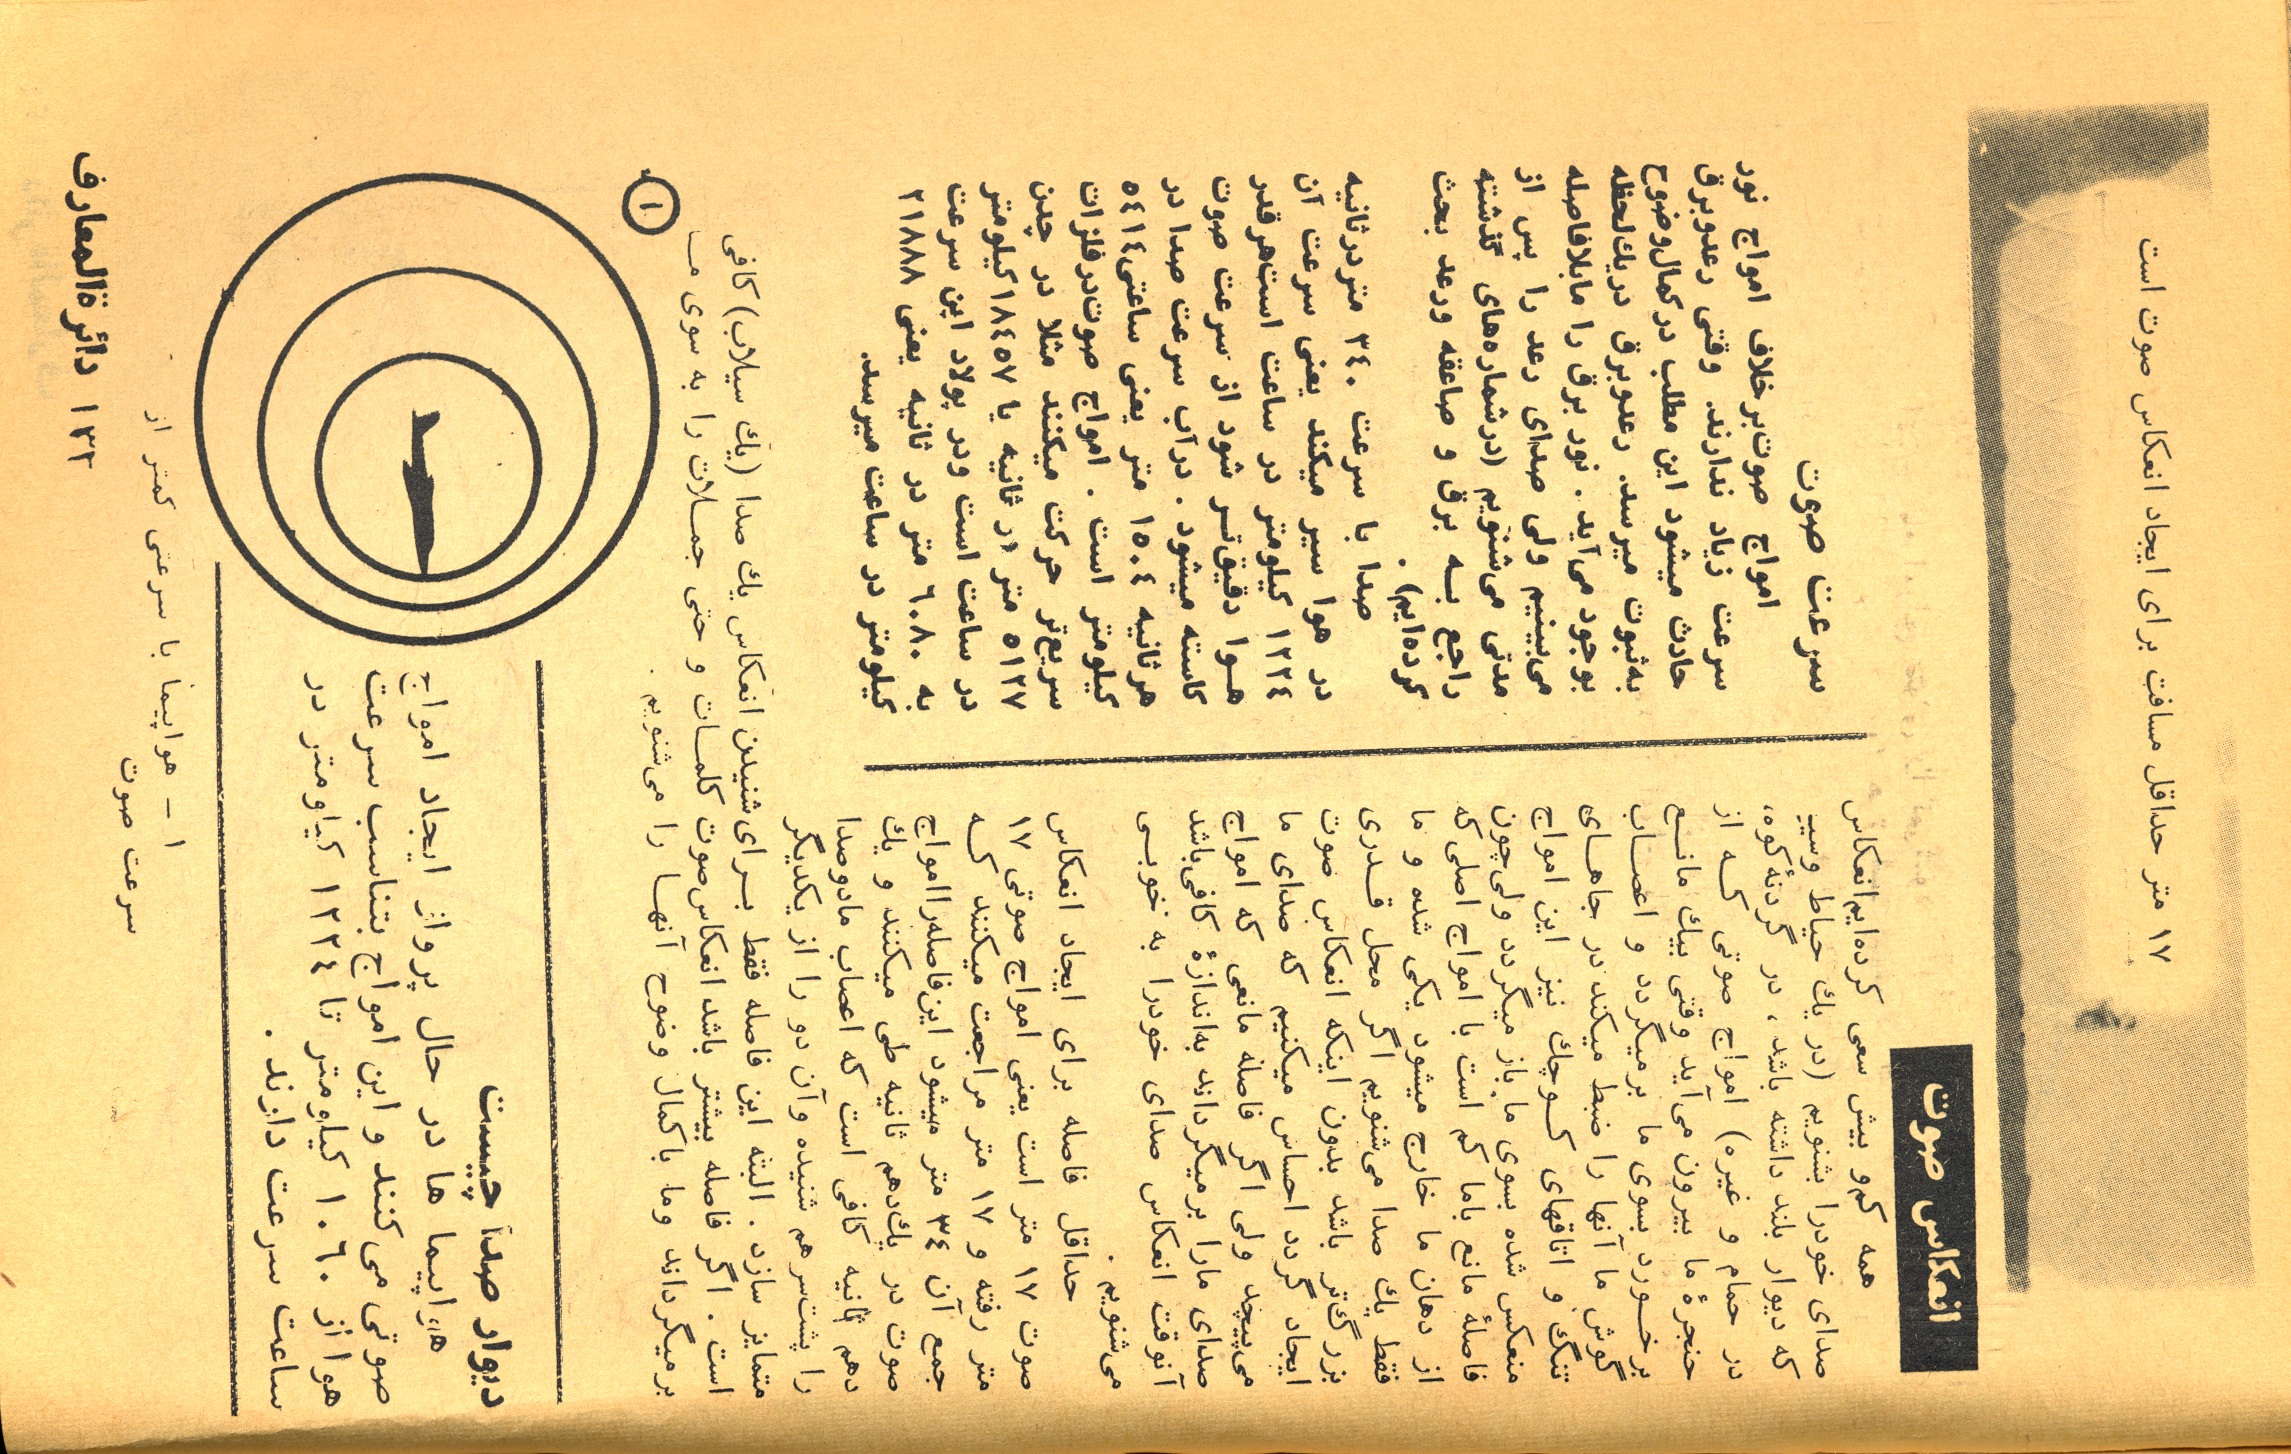 ۱۷ متر حداقل مسافت برای ایجاد انعکاس صوت است
انعکاس صوت
همه کم و بیش سعی کرده‌ایم انعکاس
صدای خودرا بشنویم (در یك حیاط وسیع
که دیوار بلند داشته باشد، در گردنهٔ کوه،
در حمام و غیره) امواج صوتی کـه از
حنجرهٔ ما بیرون می‌آید وقتی بیك مانـع
برخـورد بسوی ما برمیگردد و اعصـاب
گوش ما آنها را ضبط میکند در جاهـای
تنگ و اتاقهای کـوچك نیز این امواج
منعکس شده بسوی ما باز میگردد ولی‌چون
فاصلهٔ مانع باما کم است با امواج اصلی که
از دهان ما خارج میشود یکی شده و ما
فقط یك صدا می‌شنویم اگر محل قـدری
بزرگ‌تر باشد بدون اینکه انعکاس صوت
ایجاد گردد احساس میکنیم که صدای ما
می‌پیچد ولی اگر فاصله مانعی که امواج
صدای مارا برمیگرداند به‌اندازهٔ کافی‌باشد
آنوقت انعکاس صدای خودرا به خوبـی
می‌شنویم .
حداقل فاصله برای ایجاد انعکاس
صوت ۱۷ متر است یعنی امواج صوتی ۱۷
متر رفته و ۱۷ متر مراجعت میکنند کـه
جمع آن ۳٤ متر میشود این‌فاصله‌راامواج
صوت در یك‌دهم ثانیه طی میکنند و یك
دهم ثانیه کافی است که اعصاب مادوصدا
را پشت‌سرهم شنیده وآن دو را از یکدیگر
متمایز سازد . البته این فاصله فقط بـرای شنیدن انعکاس یك صدا (یك سیلاب) کافی
است . اگر فاصله بیشتر باشد انعکاس‌صوت کلمـات و حتی جمـلات را به سوی مـا
برمیگرداند وما باکمال وضوح آنهـا را می‌شنویم .
سرعت صوت
امواج صوت‌برخلاف امواج نور
سرعت زیاد ندارند. وقتی رعدوبرق
حادث میشود این مطلب درکمال‌وضوح
به‌ثبوت میرسد. رعدوبرق دریك‌لحظه
بوجود می‌آید . نور برق را مابلافاصله
می‌بینیم ولی صدای رعد را پس از
مدتی می‌شنویم (درشماره‌های گذشته
راجع بـه برق و صاعقه ورعد بحث
کرده‌ایم) .
صدا با سرعت ۳٤۰ متردرثانیه
در هوا سیر میکند یعنی سرعت آن
۱۲۲٤ کیلومتر در ساعت است‌هرقدر
هـوا دقیق‌تـر شود از سرعت صوت
کاسته میشود . درآب سرعت صدا در
هرثانیه ۱٥۰٤ متر یعنی ساعتی ٥٤۱٤
کیلومتر است . امواج صوت‌درفلزات
سریع‌تر حرکت میکنند مثلا در چدن
٥۱۲۷ متر در ثانیه یا ۱۸٤٥۷کیلومتر
در ساعت است ودر پولاد این سرعت
به ٦۰۸۰ متر در ثانیه یعنی ۲۱۸۸۸
کیلومتر در ساعت میرسد.
دیوار صدا چیست
هواپیما ها در حال پرواز ایجاد امواج
صوتی می‌کنند و این امواج بتناسب سرعت
هوا از ۱۰٦۰ کیلومتر تا ۱۲۲٤ کیلومتر در
ساعت سرعت دارند .
۱
۱ - هواپیما با سرعتی کمتر از
سرعت صوت
۱۳۳ دائرةالمعارف